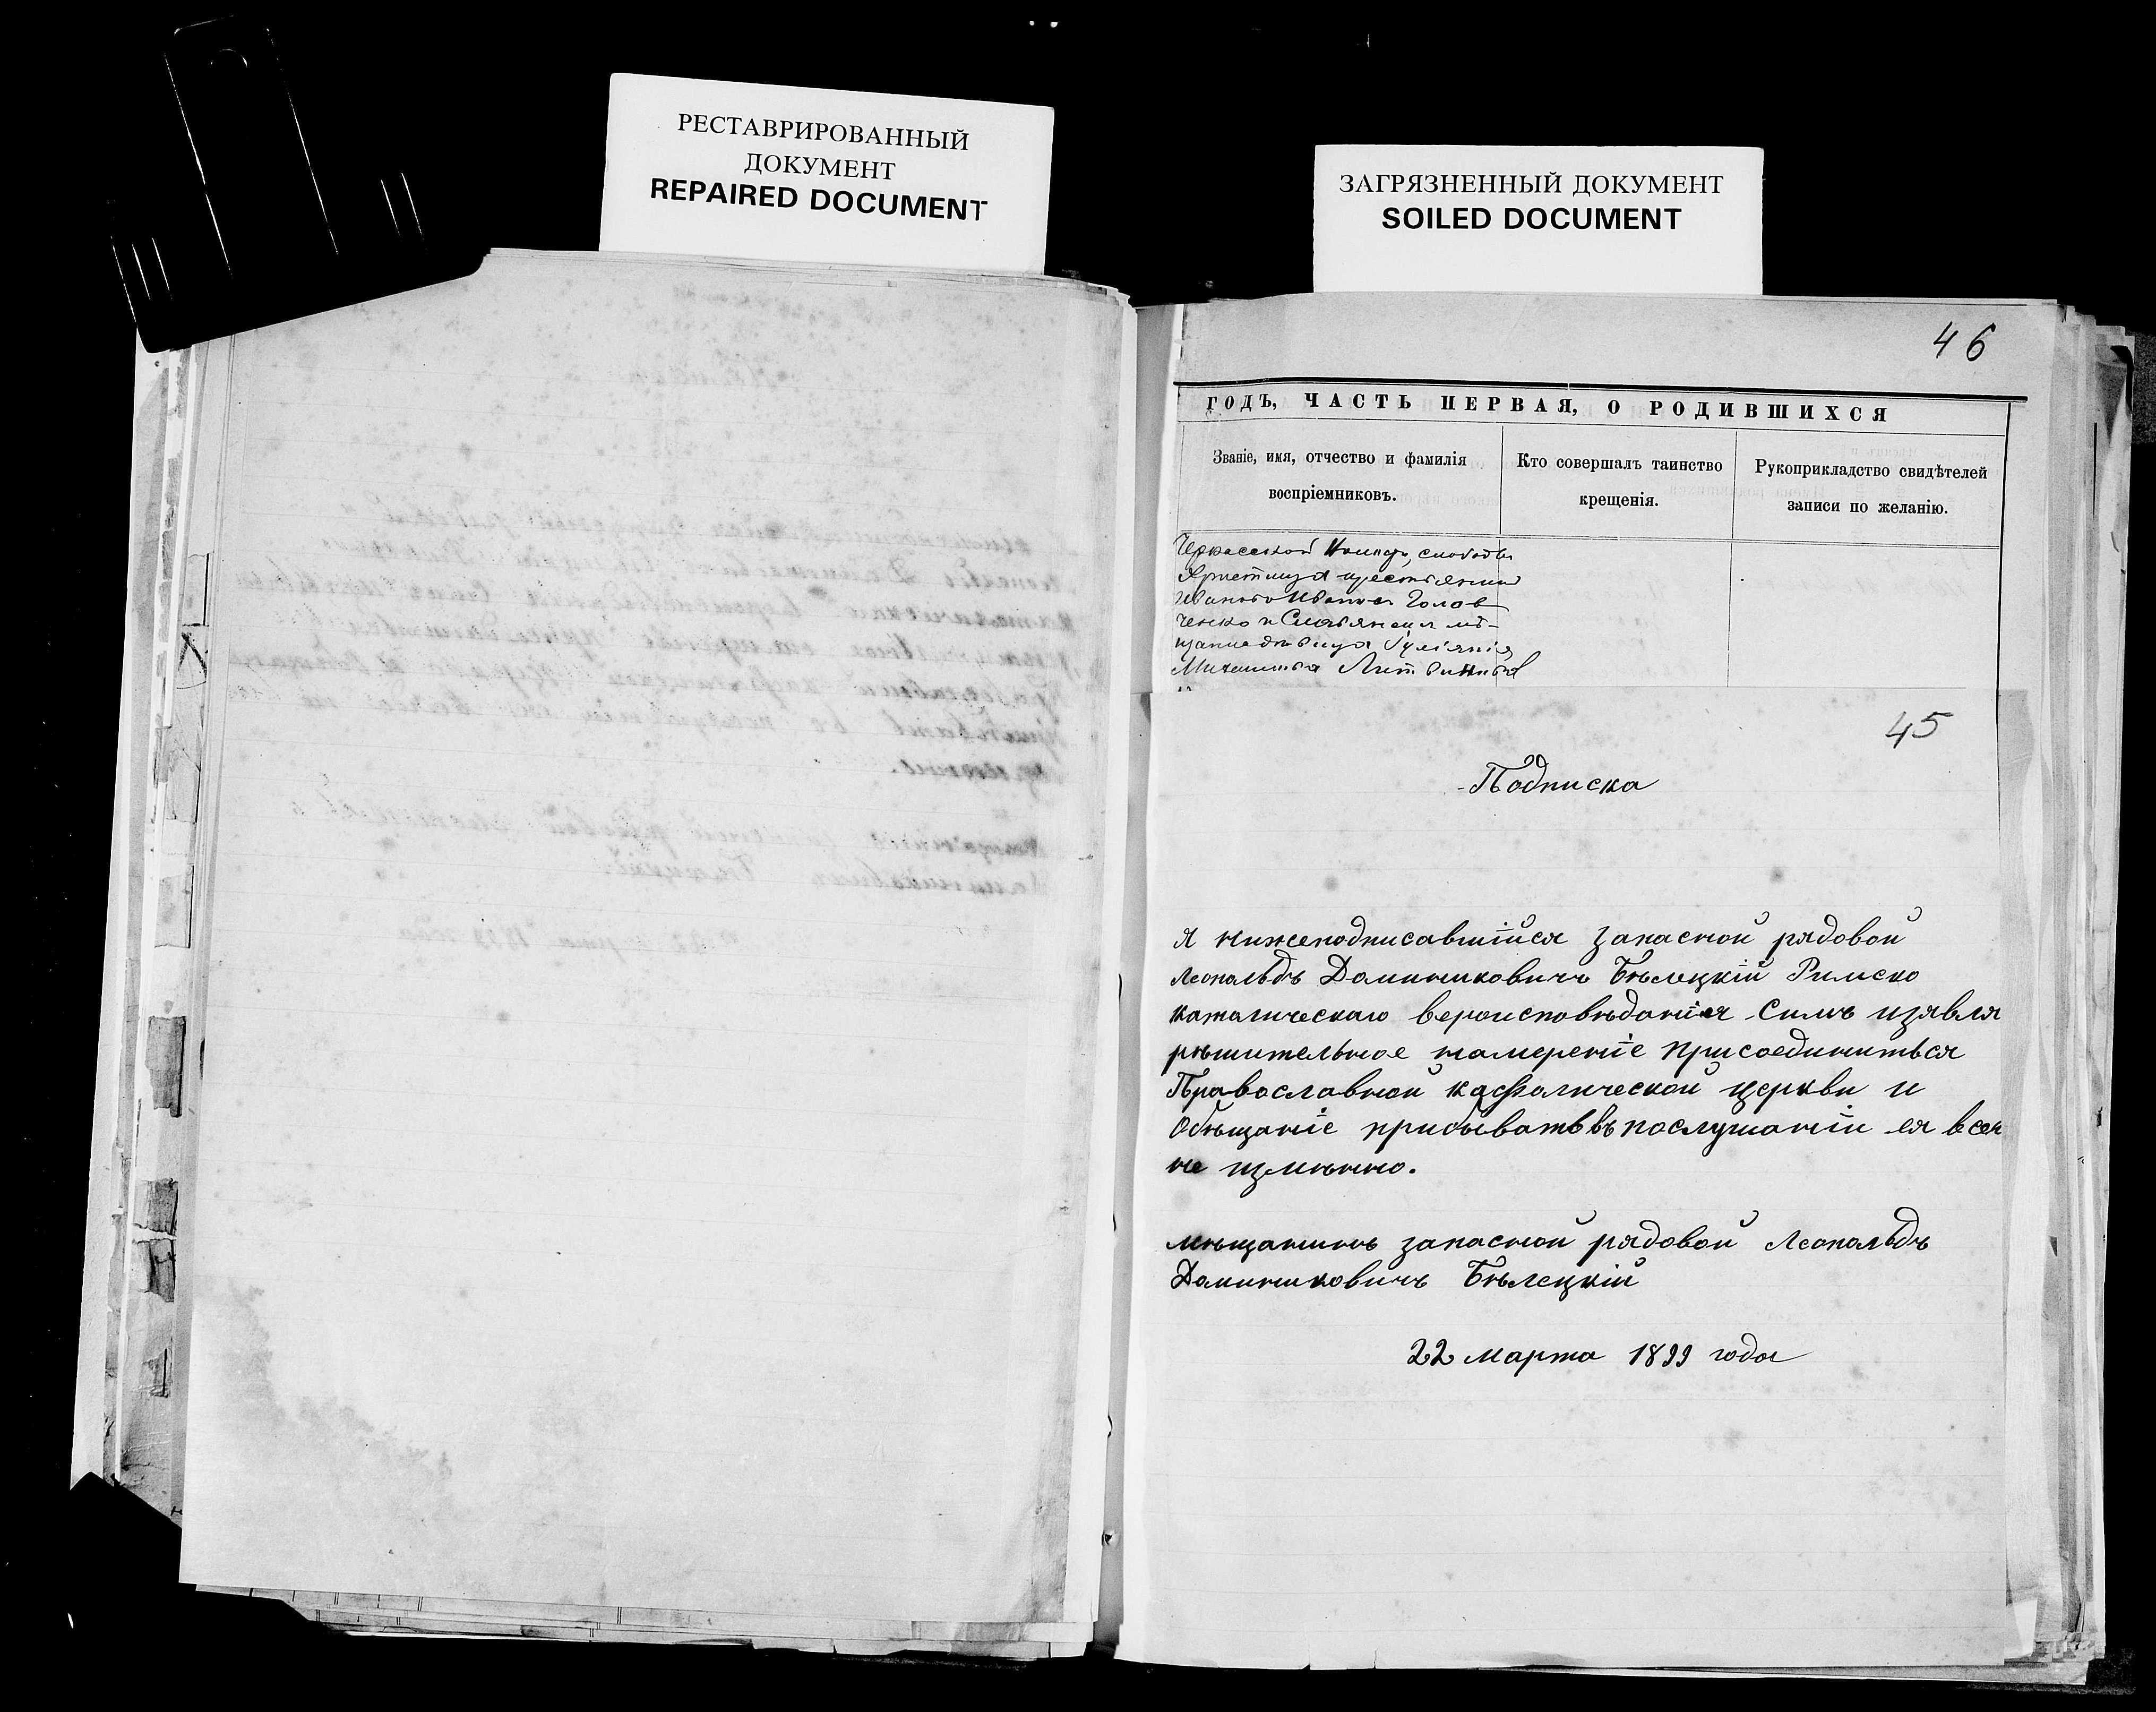 РЕСТАВРИРОВАННЫЙ
ДОКУМЕНТ
REPAIRED DOCUMENT
ЗАГРЯЗНЕННЫЙ ДОКУМЕНТ
SOILED DOCUMENT
46
ГОДЪ, ЧАСТЬ ПЕРВАЯ, О РОДИВШИХСЯ
Званіе, имя, отчество и фамилія
воспріемниковъ.
Кто совершалъ таинство
крещенія.
Рукоприкладство свидѣтелей
записи по желанію.
слободы
Ивановъ Голов
ченко и Славянская мѣ-
Михаилова Литвинова
45
Подписка
Я нижеподписавшійся запасной рядовой
Леопольдъ Доминиковичъ Бѣлецкій Римско
католическаго вероисповѣданія Симъ изявля
рѣшительное намереніе присоединиться
Православной кафолической церкви и
Обѣщаніе прибывать въ послушаніи ея всег
не измѣнно.
мѣщанинъ запасной рядовой Леопольдъ
Доминиковичъ Бѣлецкій
22 марта 1899 года